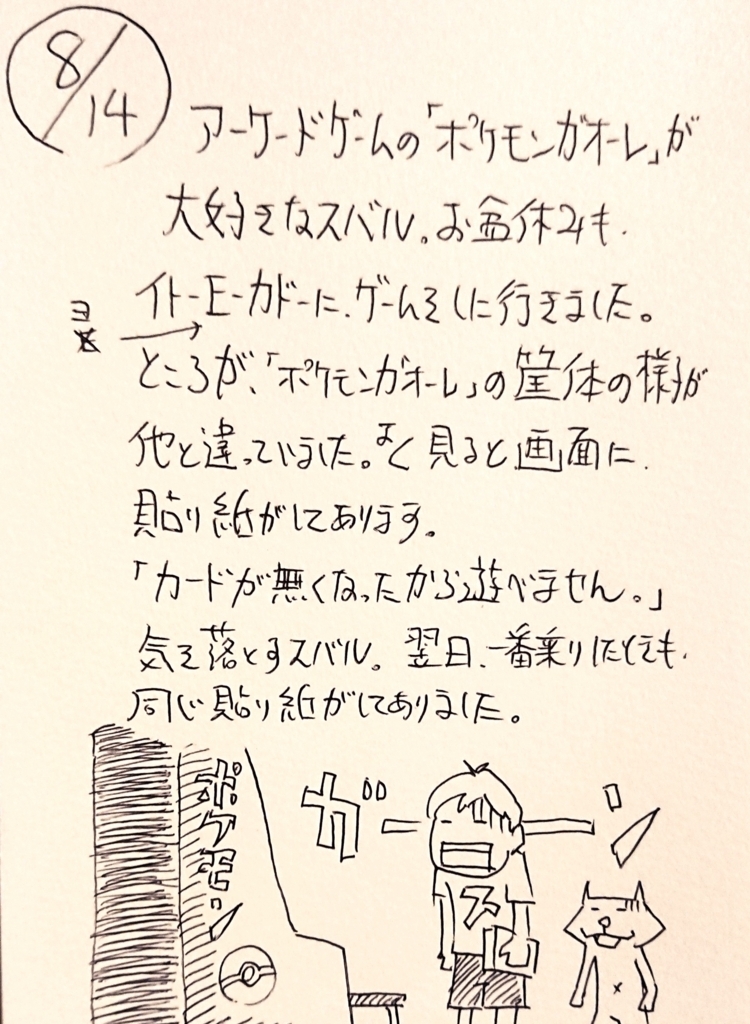 8/14
アーケードゲームの「ポケモンガオーレ」が
大好きなスバル。お盆休みも、
イトーヨーカドーに、ゲームをしに行きました。
ヨ
ところが、「ポケモンガオーレ」の筐体の様子が
他と違っていました。よく見ると画面に、
貼り紙がしてあります。
「カードが無くなったから遊べません。」
気を落とすスバル。翌日、一番乗りしたときも、
同じ貼り紙がしてありました。
ポケモン
ガーン
ス